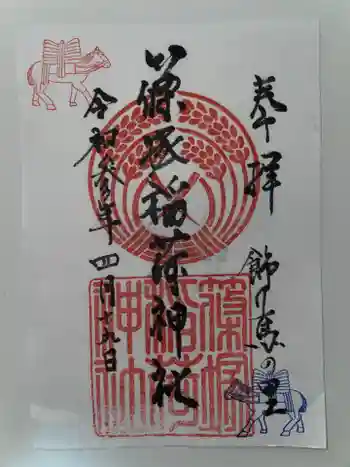 奉拝
飾り馬の里
篠塚稲荷神社
令和参年四月十九日
篠塚
稲荷
神社